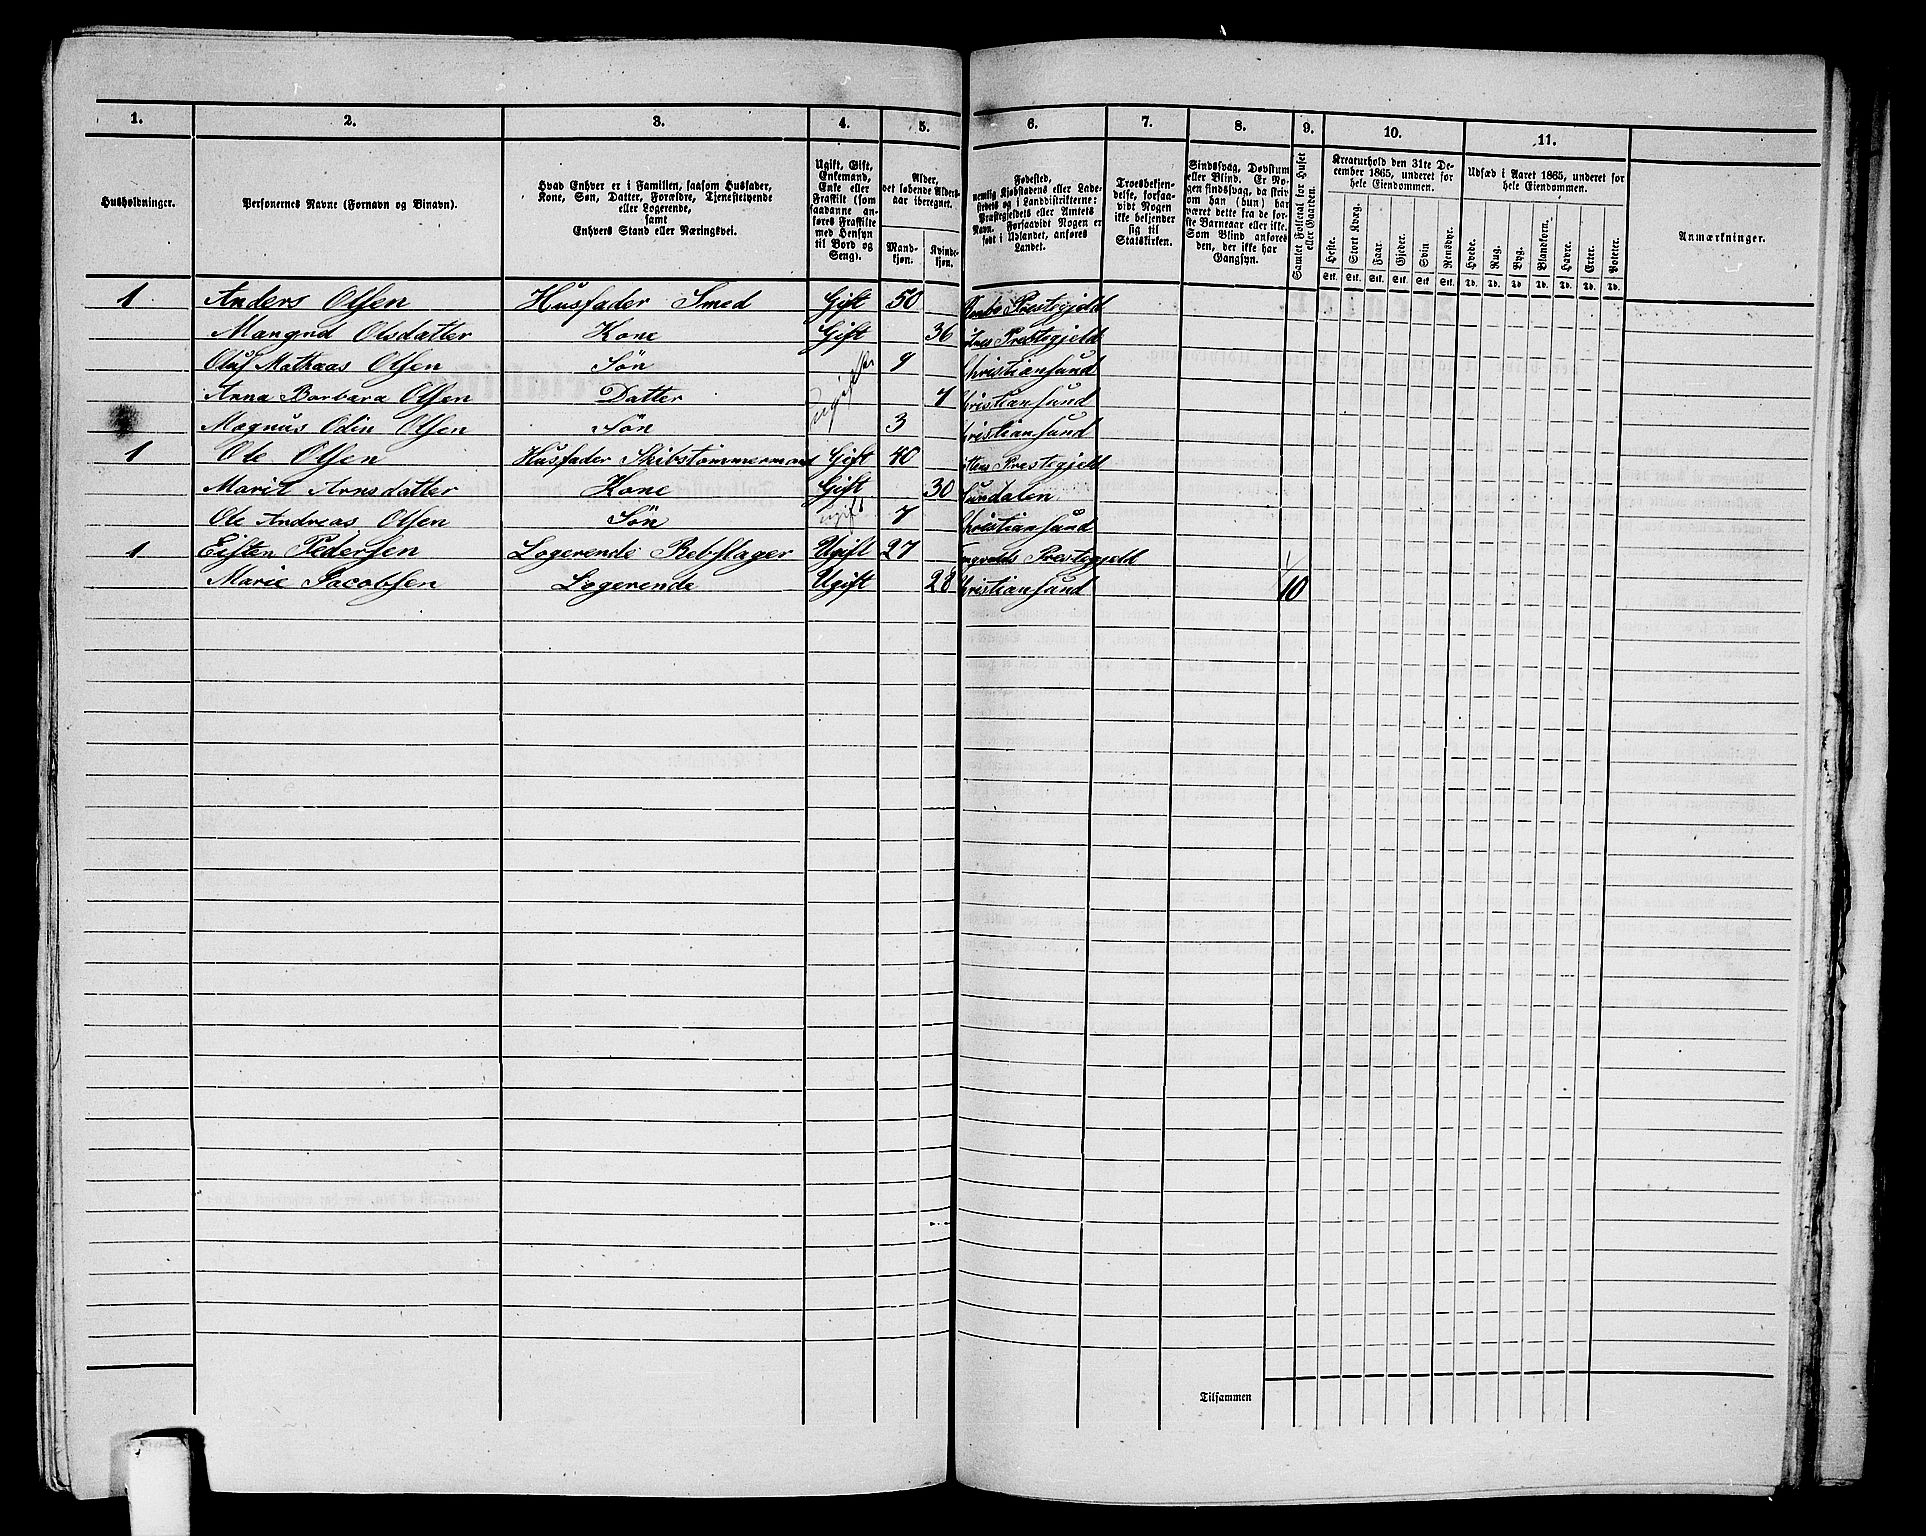 1. 2. 3. 4. 5. 6. 7. 8. 9. 10. 11.
Husholdninger.
Personernes Navne (Fornavn og Binavn).
Hvad Enhver er i Familien, saasom Husfader,
Kone, Søn, Datter, Forældre, Tjenestetyende
eller Logerende,
samt
Enhvers Stand eller Næringsvei.
Ugift, Gift,
Enkemand,
Enke eller
Fraskilt (som
saadanne an-
føres Fraskilte
med Hensyn
til Bord og
Seng).
Alder,
det løbende Alders-
aar iberegnet.
Mand-
kjøn.
Kvinde-
kjøn.
Fødested,
nemlig Kjøbstadens eller Lade-
stedets og i Landdistrikterne:
Præstegjeldets eller Amtets
Navn. Forsaavidt Nogen er
født i Udlandet, anføres
Landet.
Troesbekjen-
delse, forsaa-
vidt Nogen
ikke bekjender
sig til
Statskirken.
Sindssvag, Døvstum
eller Blind. Er No-
gen sindssvag, da skriv
om han (hun) har
været dette fra de før-
ste Barneaar eller ikke.
Som Blind anføres
den, der ikke har
Gangsyn.
Samlet Folketal for Huset
eller Gaarden.
Kreaturhold den 31te De-
cember 1865, underet for
hele Eiendommen.
Heste. Stort Kvæg. Faar. Gjeder. Svin Rensdyr.
Stk. Stk. Stk. Stk. Stk Stk.
Udsæd i Aaret 1865, underet for
hele Eiendommen.
Hvede. Rug. Byg. Blandkorn. Havre. Erter. Poteter.
Td. Td. Td Td. Td. Td. Td.
Anmærkninger.
1 Anders Olsen Husfader Smed Gift 50 Præstegjeld
Mangnd Olsdatter Kone Gift 36 Præstegjeld
Oluf Mathaas Olsen Søn Ugifte 9 Christiansund
Anna Barbara Olsen Datter 7 Christiansund
Magnus Odin Olsen Søn 3 Christiansund
1 Ole Olsen Husfader Skibstømmermand Gift 40 Præstegjeld
Marit Arnsdatter Kone Gift 30 Sundalen
Ole Andreas Olsen Søn ugift 7 Christiansund
1 Eisten Pedersen Logerende Rebslager Ugift 27 Præstegjeld
Marie Jacobsen Logerende Ugift 28 Christiansund 10
Tilsammen